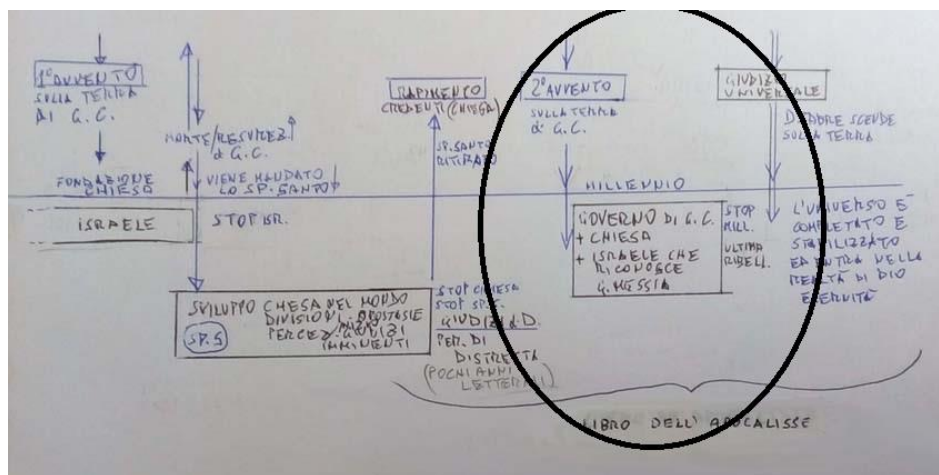 1° AVVENTO
SULLA TERRA
DI G.C.
FONDAZIONE
CHIESA
ISRAELE
MORTE/RESURREZ.
di G.C.
VIENE MANDATO
LO SP. SANTO
STOP ISR.
SVILUPPO CHIESA NEL MONDO
DIVISIONI APOSTASIE
PERCEZ. INIZIO GIUDIZI
IMMINENTI
SP.S
RAPIMENTO
CREDENTI (CHIESA)
SP. SANTO
RITIRATO
STOP CHIESA
STOP SP.S.
GIUDIZI di D.
PER. DI
DISTRETTA
(POCHI ANNI
LETTERALI)
2° AVVENTO
SULLA TERRA
di G.C.
MILLENNIO
GOVERNO DI G.C.
+ CHIESA
+ ISRAELE CHE
RICONOSCE
G. MESSIA
STOP
MILL.
ULTIMA
RIBELL.
GIUDIZIO
UNIVERSALE
D. PADRE SCENDE
SULLA TERRA
L'UNIVERSO È
COMPLETATO E
STABILIZZATO
ED ENTRA NELLA
REALTÀ DI DIO
ETERNITÀ
LIBRO DELL'APOCALISSE